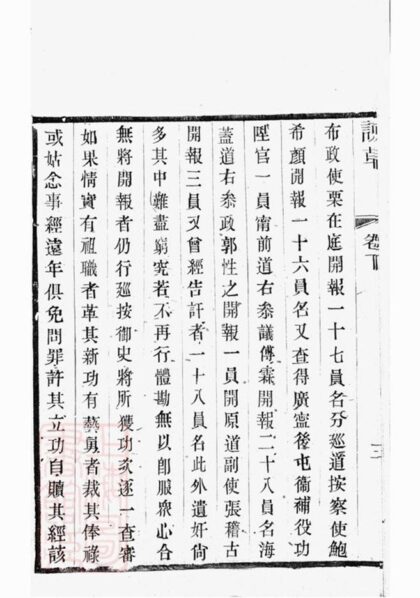 諫草
卷下
三
布政使栗在庭開報一十七員名分巡道按察使鮑
希顏開報一十六員名又查得廣寧後屯衞補役功
陞官一員甯前道右叅議傅霖開報二十八員名海
蓋道右叅政郭性之開報一員開原道副使張稽古
開報三員又曾經告訐者一十八員名此外遺奸尙
多其中難盡窮究若不再行體勘無以卽服衆心合
無將開報者仍行巡按御史將所獲功次逐一查審
如果情實有祖職者革其新功有
者裁其俸祿
或姑念事經遠年俱免問罪許其立功自贖其經該